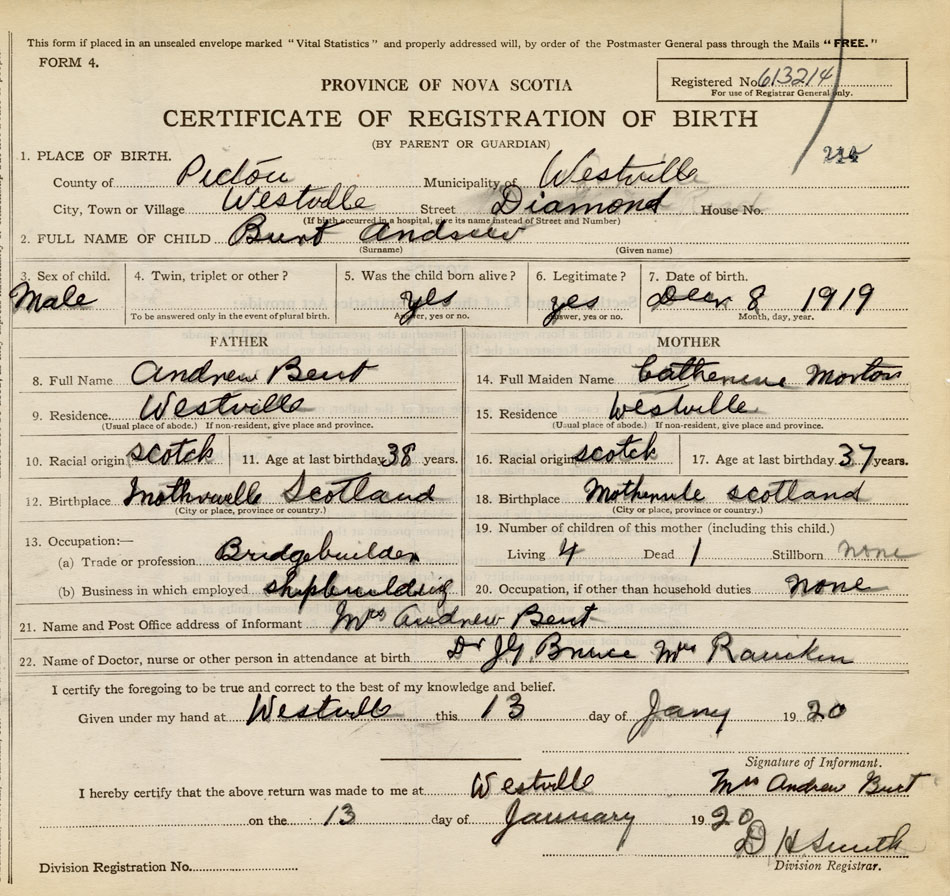 This form if placed in an unsealed envelope marked "Vital Statistics" and properly addressed will, by order of the Postmaster General pass through the Mails "FREE."
FORM 4.
PROVINCE OF NOVA SCOTIA
Registered No. 613214
For use of Registrar General only.
CERTIFICATE OF REGISTRATION OF BIRTH
(BY PARENT OR GUARDIAN)
1. PLACE OF BIRTH.
County of Pictou Municipality of Westville
City, Town or Village Westville Street Diamond House No.
(If birth occurred in a hospital, give its name instead of Street and Number)
2. FULL NAME OF CHILD Burt Andrew
(Surname) (Given name)
3. Sex of child. 4. Twin, triplet or other? 5. Was the child born alive? 6. Legitimate? 7. Date of birth.
Male yes yes Decr 8 1919
To be answered only in the event of plural birth. Answer, yes or no. Answer, yes or no. Month, day, year.
FATHER MOTHER
8. Full Name Andrew Bert 14. Full Maiden Name Catherine Morton
9. Residence Westville 15. Residence Westville
(Usual place of abode.) If non-resident, give place and province. (Usual place of abode.) If non-resident, give place and province.
10. Racial origin scotch 11. Age at last birthday 38 years. 16. Racial origin scotch 17. Age at last birthday 37 years.
12. Birthplace Scotland 18. Birthplace scotland
(City or place, province or country.) (City or place, province or country.)
13. Occupation:— 19. Number of children of this mother (including this child.)
(a) Trade or profession Bridgebuilder Living 4 Dead 1 Stillborn none
(b) Business in which employed shipbuilding 20. Occupation, if other than household duties none
21. Name and Post Office address of Informant Mrs Andrew Bert
22. Name of Doctor, nurse or other person in attendance at birth Dr J G Bruce Mrs Rankin
I certify the foregoing to be true and correct to the best of my knowledge and belief.
Given under my hand at Westville this 13 day of Jany 1920
Signature of Informant.
I hereby certify that the above return was made to me at Westville Mrs Andrew Burt
on the 13 day of January 1920
D H Smith
Division Registration No. Division Registrar.